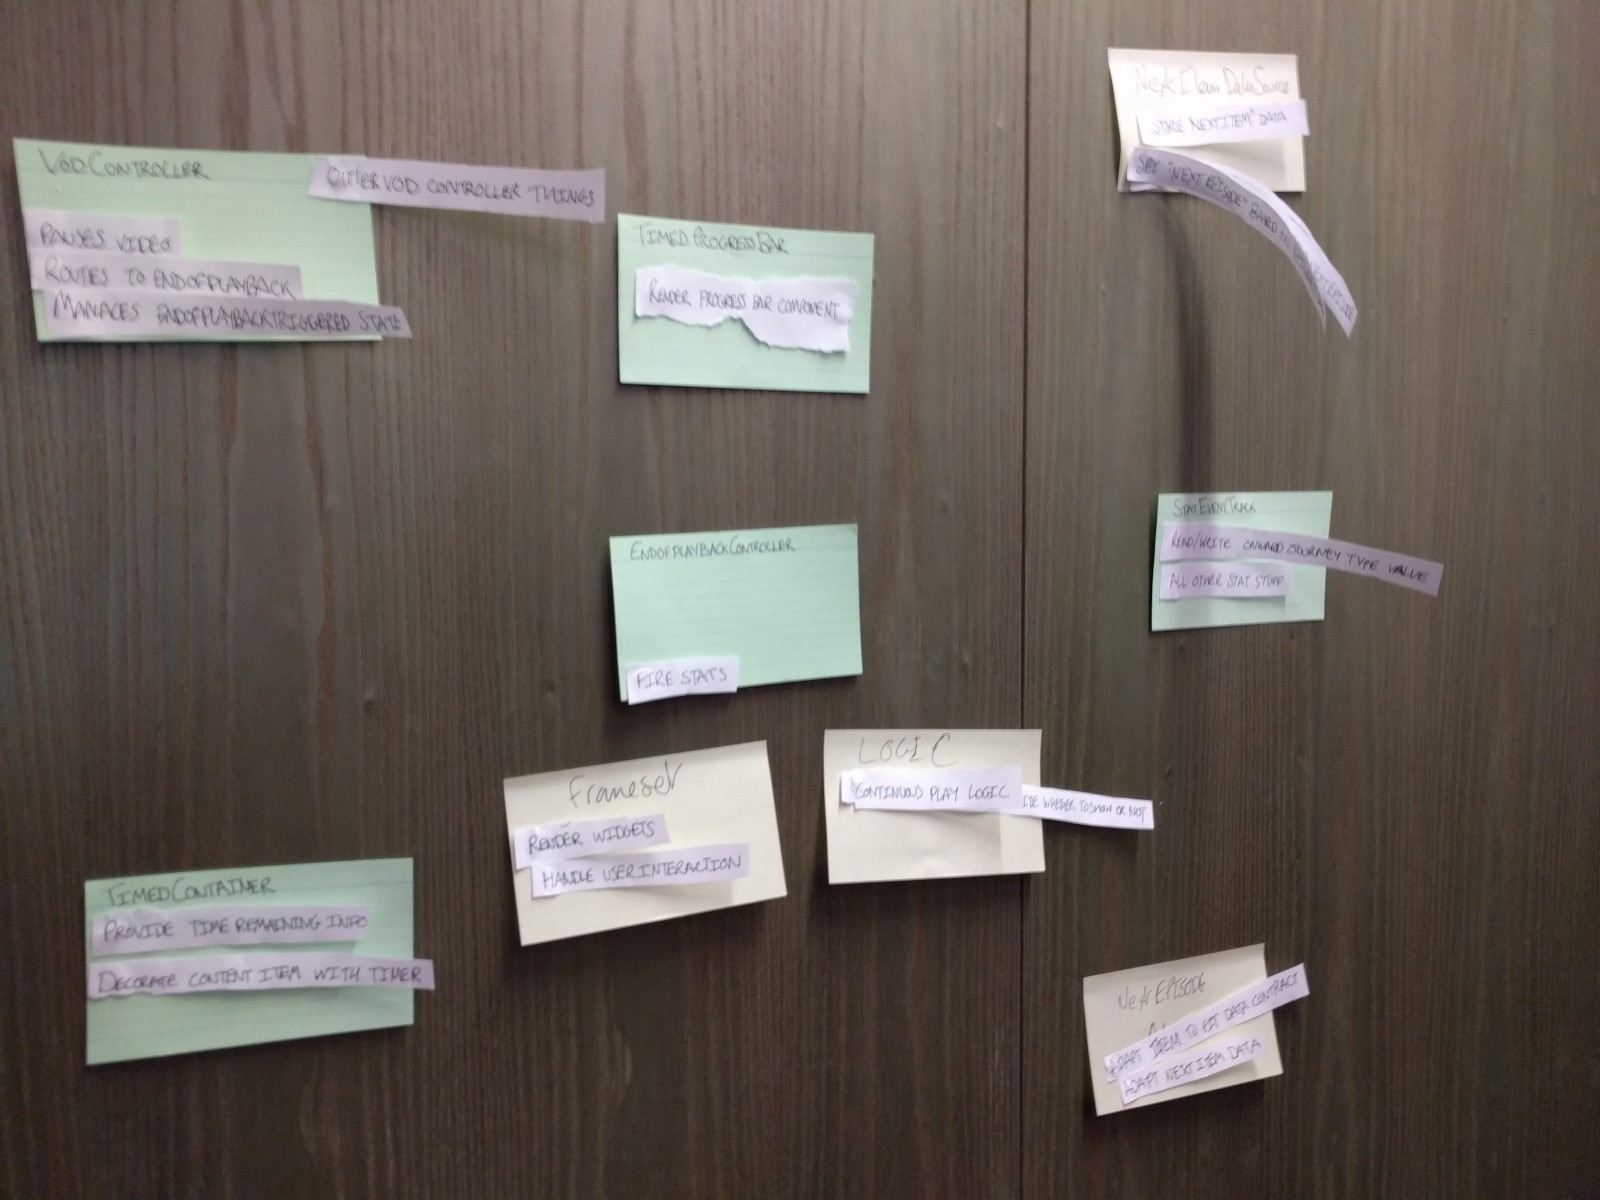 VODCONTROLLER
OTHER VOD CONTROLLER THINGS
PAUSES VIDEO
ROUTES TO ENDOFPLAYBACK
MANAGES ENDOFPLAYBACKTRIGGERED STATE
TIMEDPROGRESSBAR
RENDER PROGRESS BAR COMPONENT
NextItemDataSource
STORE "NEXTITEM" DATA
SET "NEXT EPISODE" BASED ON EPISODE
STATEVENTTRACK
READ/WRITE ONWARD JOURNEY TYPE VALUE
ALL OTHER STAT STUFF
ENDOFPLAYBACKCONTROLLER
FIRE STATS
frameset
RENDER WIDGETS
HANDLE USER INTERACTION
LOGIC
CONTINUOUS PLAY LOGIC
WHETHER TO SHOW OR NOT
TIMEDCONTAINER
PROVIDE TIME REMAINING INFO
DECORATE CONTENT ITEM WITH TIMER
NextEPISODE
ADAPT ITEM TO FIT DATA CONTRACT
ADAPT NEXT ITEM DATA